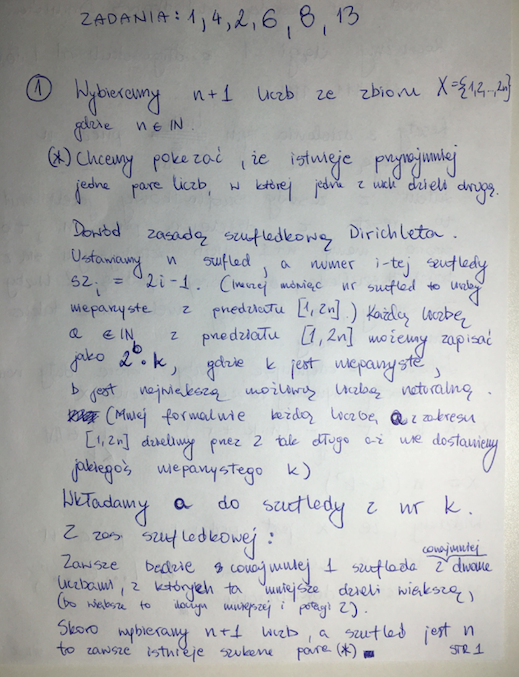 ZADANIA: 1, 4, 2, 6, 8, 13
① Wybieramy n+1 liczb ze zbioru X={1,2,..,2n}
gdzie n∈ℕ.
(*) Chcemy pokazać, że istnieje przynajmniej
jedna para liczb, w której jedna z nich dzieli drugą.
Dowód zasadą szufladkową Dirichleta.
Ustawiamy n szuflad, a numer i-tej szuflady
sz_i = 2i-1. (Inaczej mówiąc nr szuflad to liczby
nieparzyste z przedziału [1,2n].) Każdą liczbę
a ∈ℕ z przedziału [1,2n] możemy zapisać
jako 2^b · k, gdzie k jest nieparzyste,
b jest największą możliwą liczbą naturalną.
(Mniej formalnie każdą liczbę a z zakresu
[1,2n] dzielimy przez 2 tak długo aż nie dostaniemy
jakiegoś nieparzystego k)
Wkładamy a do szuflady z nr k.
Z zas szufladkowej:
Zawsze będzie conajmniej 1 szuflada z conajmniej dwoma
liczbami, z których ta mniejsza dzieli większą,
(bo większa to iloczyn mniejszej i potęgi 2).
Skoro wybieramy n+1 liczb, a szuflad jest n
to zawsze istnieje szukana para (*) ■
STR 1